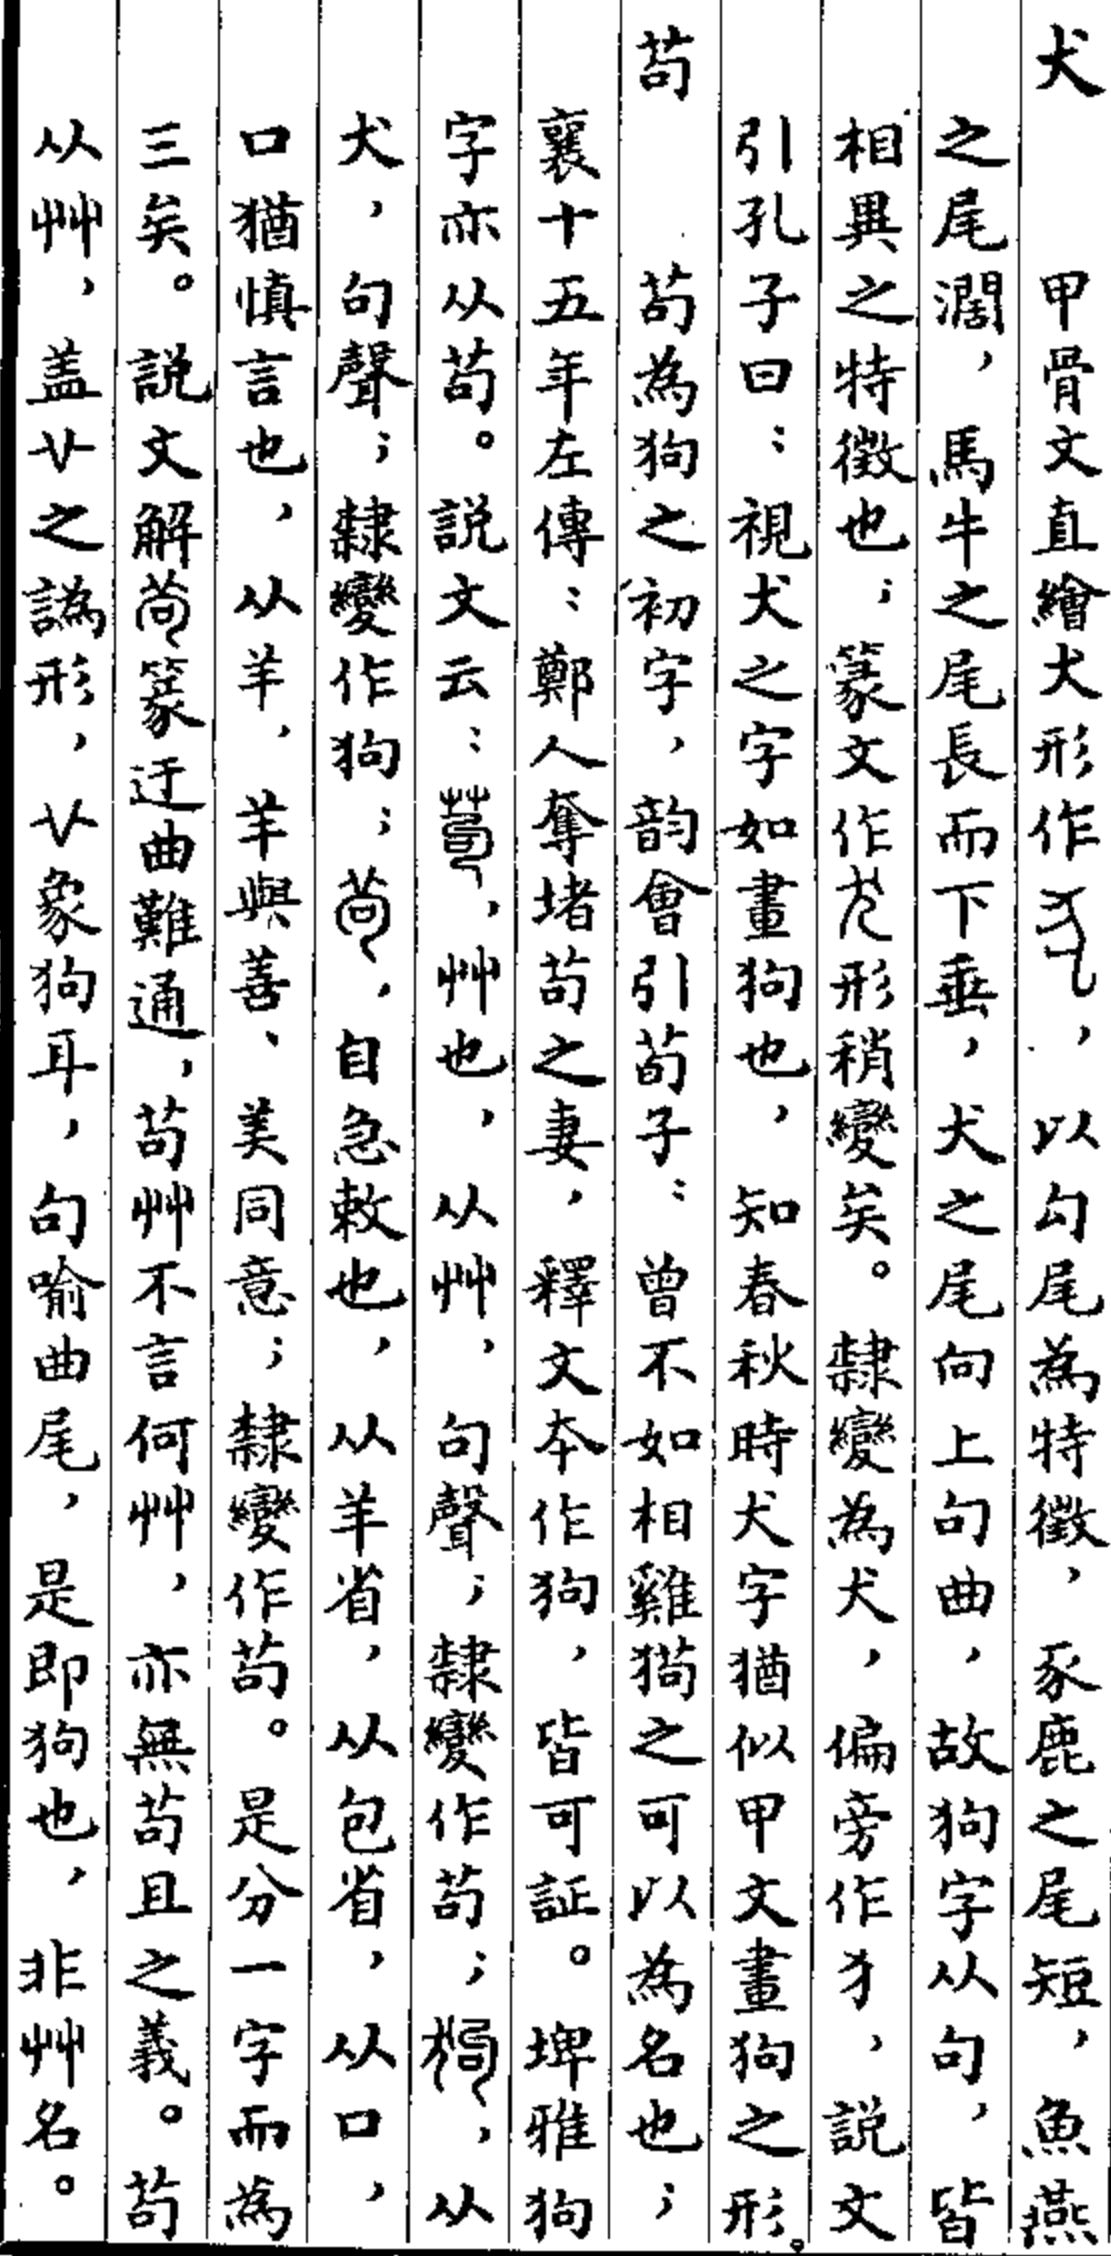 犬　甲骨文直繪犬形作，以勾尾為特徵，豕鹿之尾短，魚燕
之尾濶，馬牛之尾長而下垂，犬之尾向上句曲，故狗字从句，皆
相異之特徵也；篆文作形稍變矣。隸變為犬，偏旁作犭，説文
引孔子曰：視犬之字如畫狗也，知春秋時犬字猶似甲文畫狗之形。
苟　苟為狗之初字，韵會引荀子：曾不如相雞猫之可以為名也；
襄十五年左傳：鄭人奪堵苟之妻，釋文本作狗，皆可証。埤雅狗
字亦从苟。説文云：，艸也，从艸，句聲；隸變作苟；，从
犬，句聲；隸變作狗；，自急敕也，从羊省，从包省，从口，
口猶慎言也，从羊，羊與善、美同意；隸變作苟。是分一字而為
三矣。説文解篆迂曲難通，苟艸不言何艸，亦無苟且之義。苟
从艸，盖丷之譌形，丷象狗耳，句喻曲尾，是即狗也，非艸名。